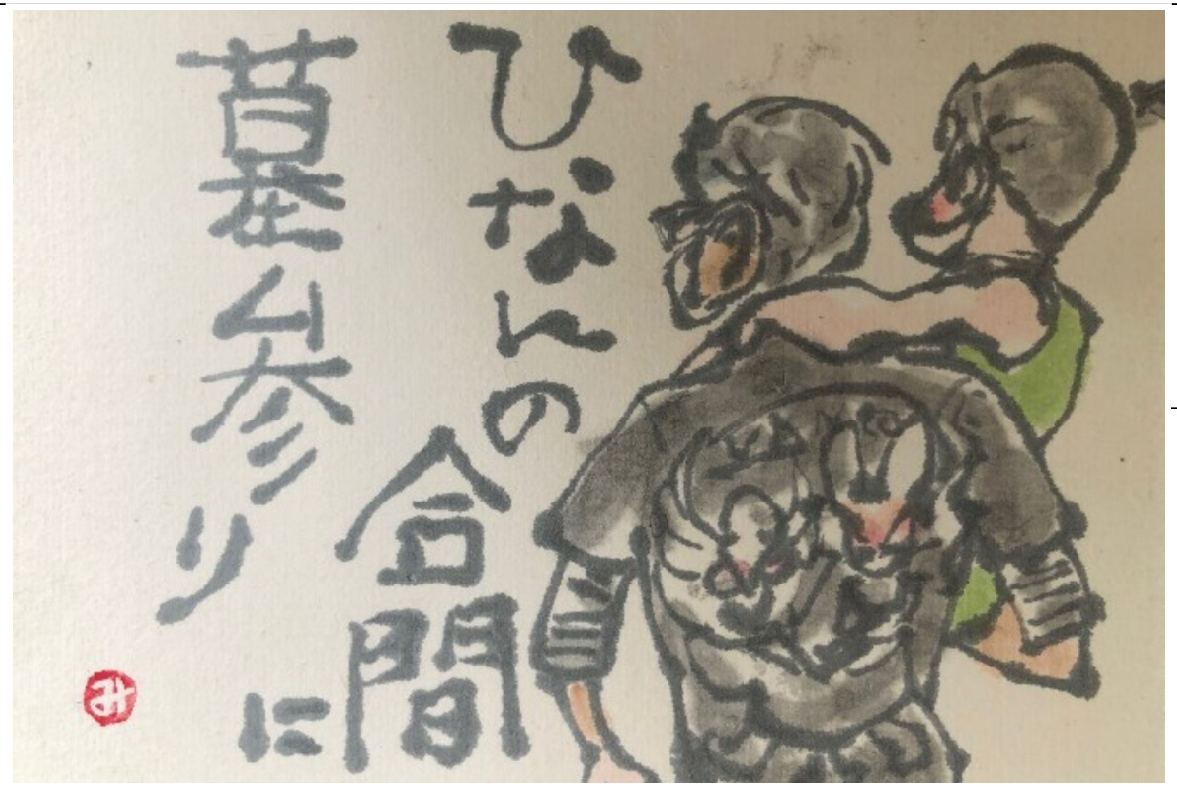 ひなんの
合間に
墓参り
み